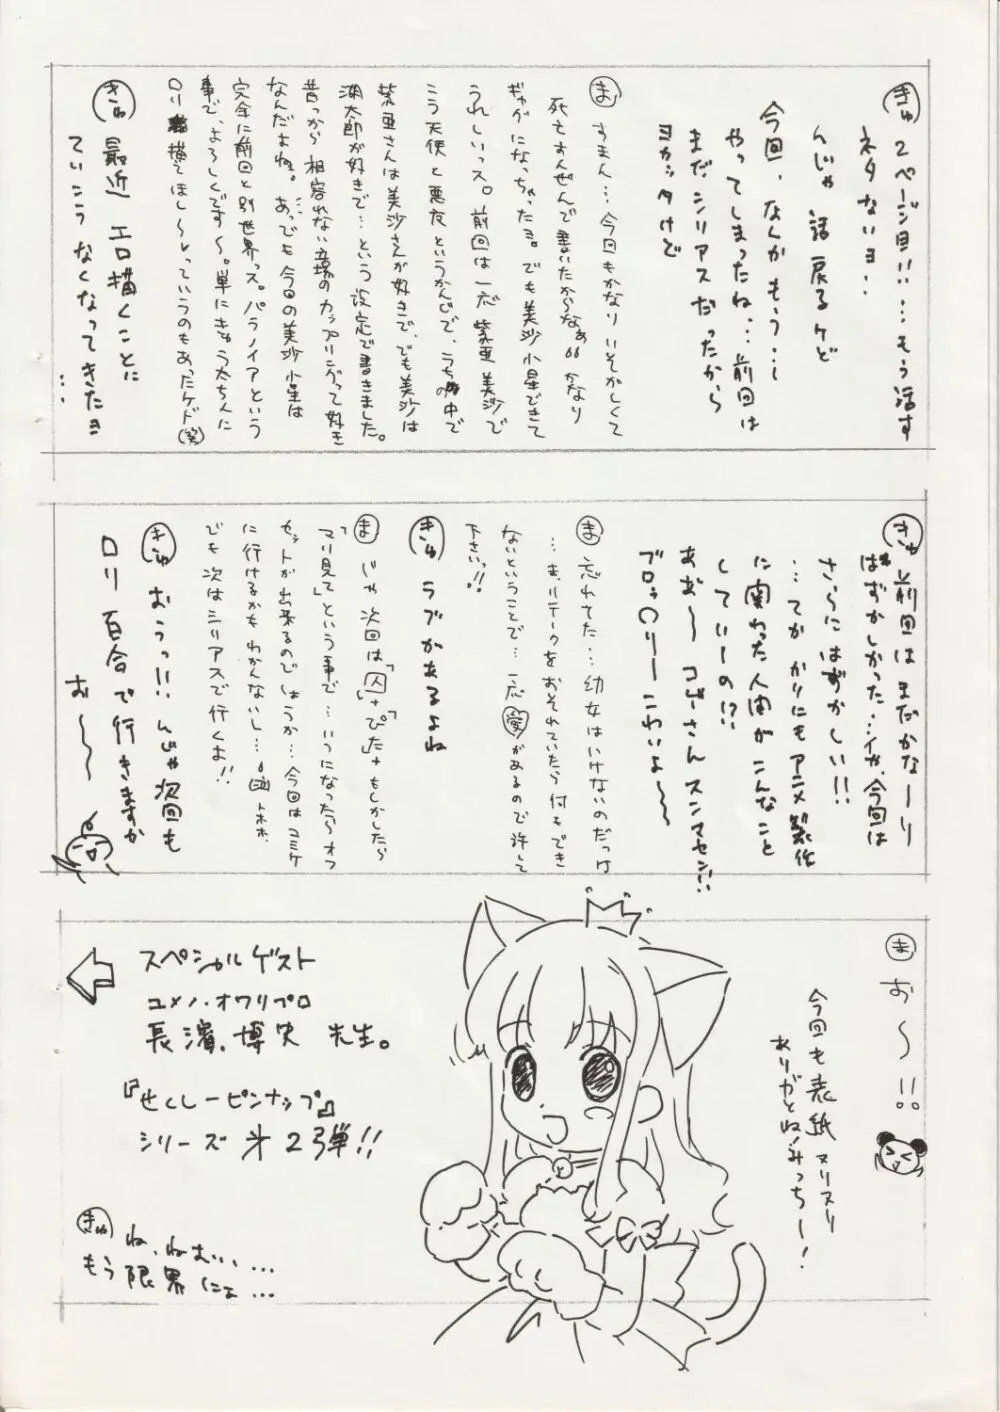 きゅ 2ページ目!!…もう話す
ネタないョ…
んじゃ 話 戻るケど
今回、なんか もう…
やってしまったね…前回は
まだシリアスだったから
ヨカッタけど
ま すまん…今回もかなりいそがしくて
死にすんぜんで書いたからなぁ かなり
ギャグになっちゃったョ。でも美沙小星できて
うれしいっス。前回は一応 紫亜 美沙で
こう天使と悪友というかんじで、うちの中で
紫亜さんは美沙さんが好きで、でも美沙は
湖太郎が好きで…という設定で書きました。
昔っから 相容れない立場のカップリングって好き
なんだよねぇ。あっでも今回の美沙小星は
完全に前回と別世界っス。パラノイアという
事で、よろしくです〜。単にきゅう太ちんに
ロリ描いてほし〜っていうのもあったケド(笑)
きゅ 最近 エロ描くことに
ていこうなくなってきたョ
…
きゅ 前回はまだかなーり
はずかしかった…イヤ、今回は
さらにはずかしい!!
…てか かりにも アニメ製作
に関わった人間がこんなこと
していーの!?
あぁ〜 コゲさんスンマセン!!
ブロッ〇リーー こわいよ〜〜
ま 忘れてた…幼女はいけないのだっけ
…ま、リテークをおそれていたら何もでき
ないということで…一応 愛 があるので許して
下さいっ!!
きゅ ラブがあるよね
ま じゃ次回は「囚」+「ぴた」+もしかしたら
「マリ見て」という事で…いつになったらオフ
セットが出来るのでしょうか…今回はコミケ
に行けるかもわかんないし… トホホ
でも次はシリアスで行くよ!!
きゅ おうっ!!んじゃ次回も
ロリ百合で行きますか
お〜〜
ま お〜!!
今回も表紙ヌリヌリ
ありがとね!みっちー!
スペシャルゲスト
ユメノ・オワリプロ
長濱 博史 先生。
『せくしーピンナップ』
シリーズ 第2弾!!
きゅ ね、ねむい、…
もう 限界 にょ…